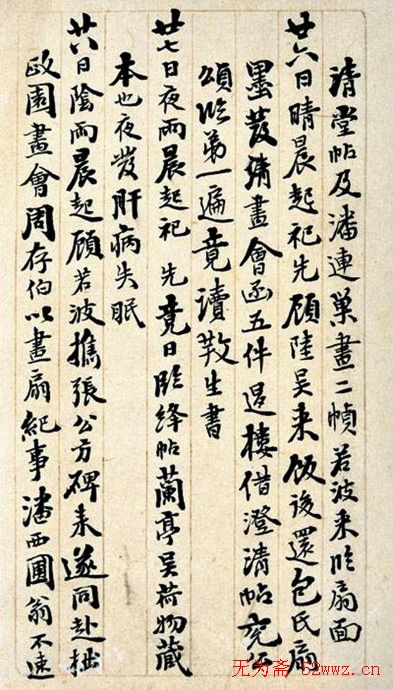 清堂帖及潘連巢畫二幀若波来臨扇面
廿六日晴晨起祀先顧陸吴来飯後還包氏扇
墨發畫會函五件退樓借澄清帖兖公
頌臨第一遍竟讀散生書
廿七日夜雨晨起祀先竟日臨絳帖蘭亭吴荷物藏
本也夜發肝病失眠
廿八日陰雨晨起顧若波攜張公方碑来遂同赴拙
政園畫會周存伯以畫扇紀事潘西圃翁不速
无为斋 52wwz.cn